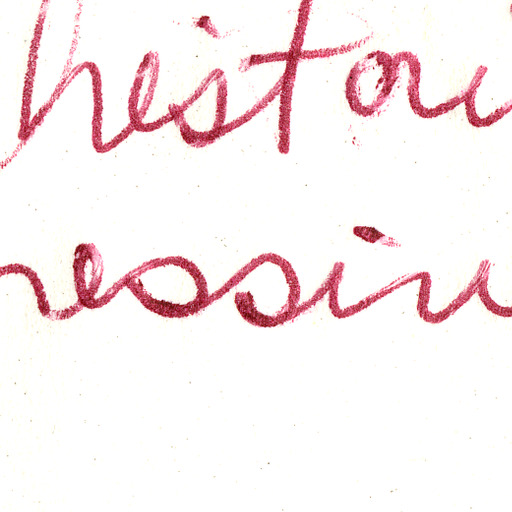 histoi
ressin